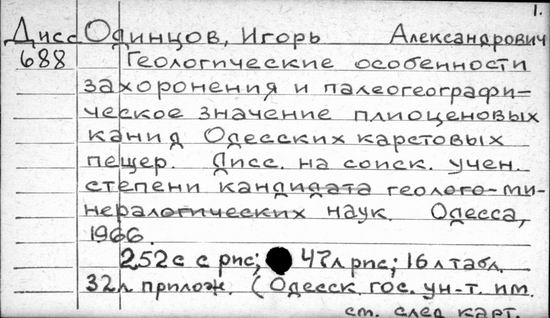 1.
Дисс Одинцов, Игорь Александрович
688 Геологические особенности
захоронения и палеогеографи-
ческое значение плиоценовых
канид Одесских карстовых
пещер. Дисс. на соиск. учен.
степени кандидата геолого-ми-
нералогических наук. Одесса,
1966.
252с с рис; 47л рис; 16л табл.
32л прилож. (Одесск. гос. ун-т. им.
см. след карт.